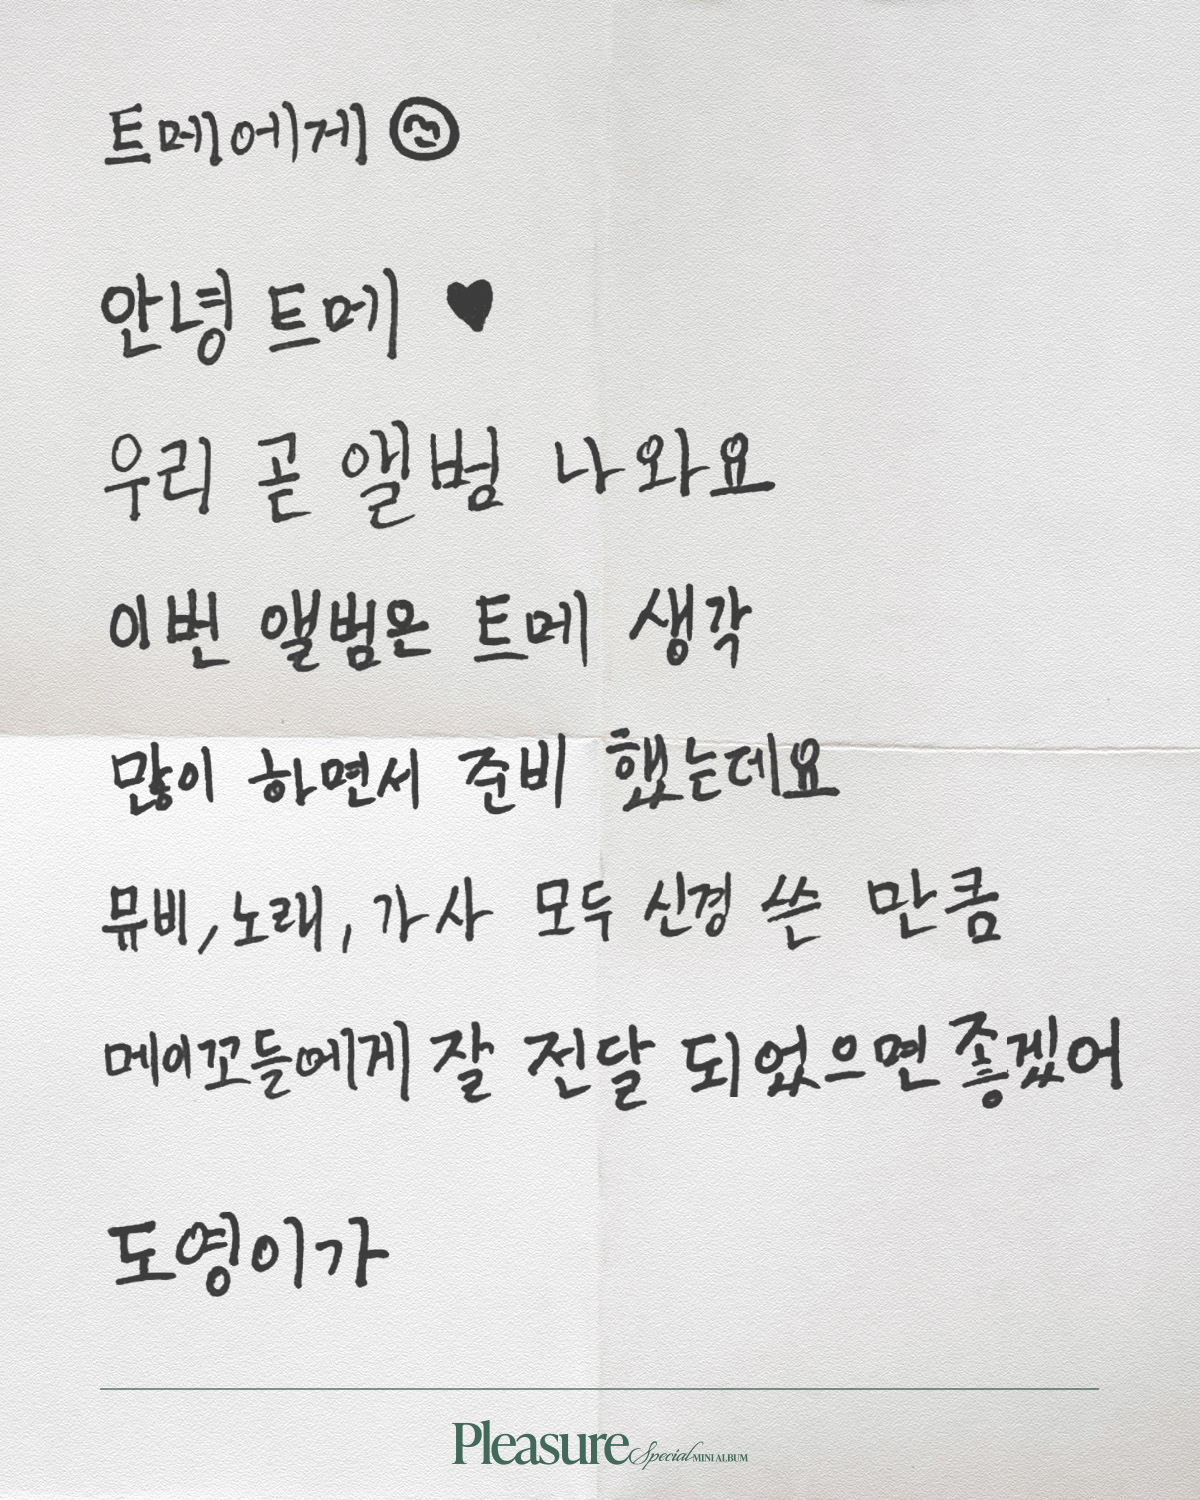 트메에게
안녕 트메 ♥
우리 곧 앨범 나와요
이번 앨범은 트메 생각
많이 하면서 준비 했는데요
뮤비, 노래, 가사 모두 신경 쓴 만큼
메이꼬들에게 잘 전달 되었으면 좋겠어
도영이가
Pleasure Special MINI ALBUM